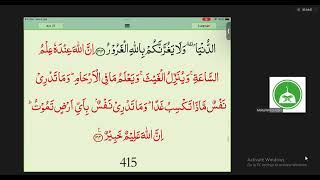 الدُّنْيَا وَلَا يَغُرَّنَّكُمْ بِاللّٰهِ الْغَرُوْرُ ﴿۳۳﴾ اِنَّ اللّٰهَ عِنْدَهٗ عِلْمُ
السَّاعَةِ ۚ وَيُنَزِّلُ الْغَيْثَ ۚ وَيَعْلَمُ مَا فِى الْاَرْحَامِ ؕ وَمَا تَدْرِىْ
نَفْسٌ مَّاذَا تَكْسِبُ غَدًا ؕ وَمَا تَدْرِىْ نَفْسٌۢ بِاَىِّ اَرْضٍ تَمُوْتُ ؕ
اِنَّ اللّٰهَ عَلِيْمٌ خَبِيْرٌ ﴿۳۴﴾
415
Activate Windows
Go to PC settings to activate Windows.